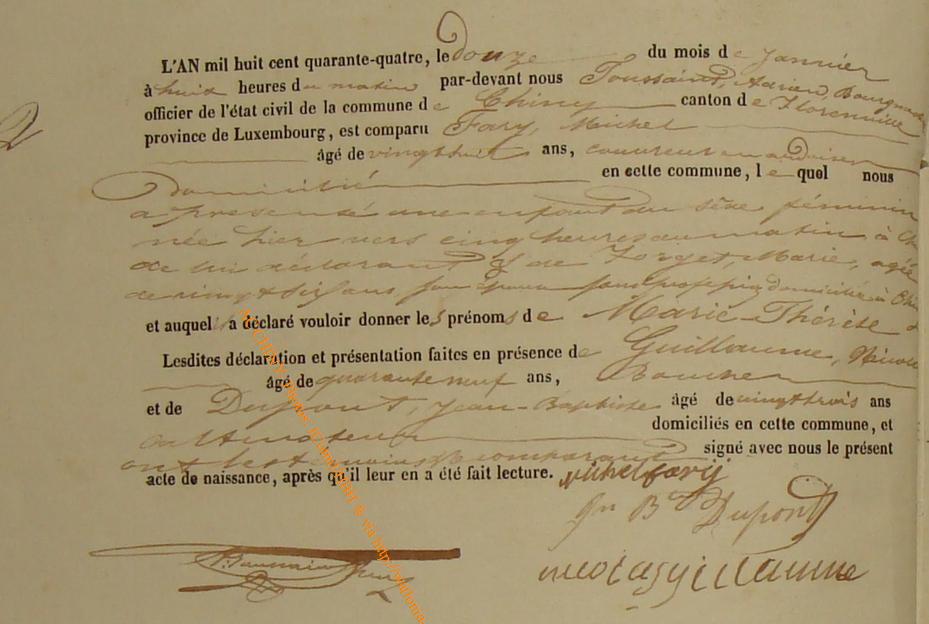 L'AN mil huit cent quarante-quatre, le douze du mois de Janvier
à huit heures du matin par-devant nous Toussaint, Adrien, Bourgmestre
officier de l'état civil de la commune de Chiny canton de Florenville
province de Luxembourg, est comparu Fary, Michel
âgé de vingt huit ans, couvreur en ardoises
domicilié en cette commune, lequel nous
a présenté une enfant du sèxe féminin
née hier vers cinq heures du matin à
de lui déclarant & de Forget, Marie, agée
de vingt six ans, son épouse sans profession domiciliée à
et auquel il a déclaré vouloir donner les prénoms de Marie-Thérèse
Lesdites déclaration et présentation faites en présence de Guillaume, Nicolas
âgé de quarante neuf ans,
et de Dupont, Jean-Baptiste âgé de vingt trois ans
cultivateur domiciliés en cette commune, et
ont les témoins & comparant signé avec nous le présent
acte de naissance, après qu'il leur en a été fait lecture. Michel fary
Jn Bte Dupont
nicolas guillaume